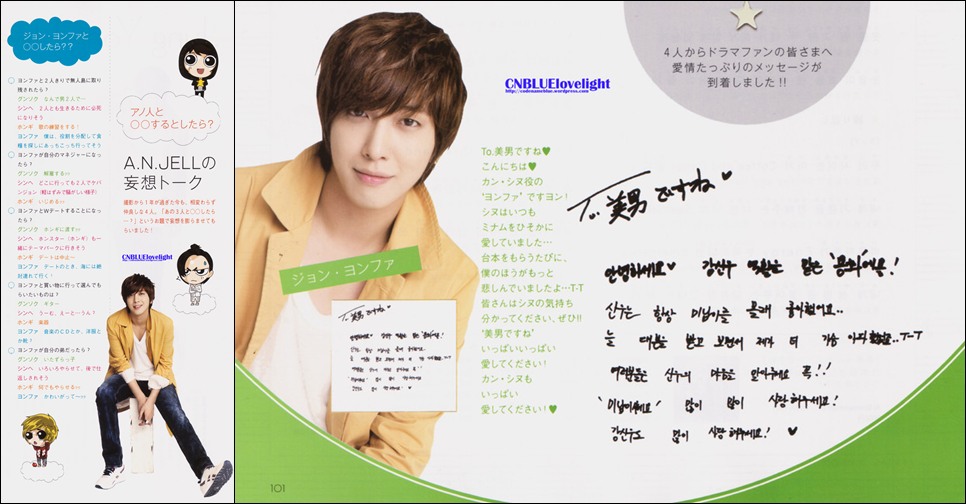 ジョン・ヨンファと
○○したら??
ヨンファと2人きりで無人島に取り
残されたら?
グンソク なんで男2人で…
シンヘ 2人とも生きるために必死
になりそう
ホンギ 歌の練習をする!
ヨンファ 僕は、役割を分配して食
糧を探しにあっちこっち行ってそう
ヨンファが自分のマネジャーになっ
たら?
グンソク 解雇する
シンヘ どこに行っても2人でケバ
ンジョン(軽はずみで騒がしい様子)
ホンギ いじめる
ヨンファとWデートすることになっ
たら?
グンソク ホンギに渡す
シンヘ ホンスター(ホンギ)も一
緒にテーマパークに行きそう
ホンギ デートは中止…
ヨンファ デートのとき、海には絶
対連れて行く!
ヨンファと買い物に行って選んでも
らいたいものは?
グンソク ギター
シンヘ うーむ、えーとーりん?
ホンギ 楽器
ヨンファ 音楽のCDとか、洋服と
か靴?
ヨンファが自分の弟だったら?
グンソク いたずらっ子
シンヘ いろいろやらせて、後で仕
返しされそう
ホンギ 何でもやらせる
ヨンファ かわいがって
アノ人と
○○するとしたら?
A.N.JELLの
妄想トーク
撮影から1年が過ぎた今も、相変わらず
仲良しな4人。「あの3人と○○したら
…?」というお題で妄想を膨らませても
らいました!
CNBLUElovelight
4人からドラマファンの皆さまへ
愛情たっぷりのメッセージが
到着しました!!
CNBLUElovelight
http://codenameblue.wordpress.com
To.美男ですね♥
こんにちは♥
カン・シヌ役の
'ヨンファ'ですヨン!
シヌはいつも
ミナムをひそかに
愛していました…
台本をもらうたびに、
僕のほうがもっと
悲しんでいましたよ…T-T
皆さんはシヌの気持ち
分かってください、ぜひ!!
'美男ですね'
いっぱいいっぱい
愛してください!
カン・シヌも
いっぱい
愛してください!♥
ジョン・ヨンファ
To. 美男ですね♥
안녕하세요♥ 강신우 역할을 맡은 '용화'예요!
신우는 항상 미남이를 몰래 좋아했어요..
늘 대본을 받고 보면서 제가 더 가슴 아파..T-T
여러분들은 신우의 마음을 알아주세요 꼭!!
'미남이시네요' 많이 많이 사랑해주세요!
강신우도 많이 사랑해주세요! ♥
101